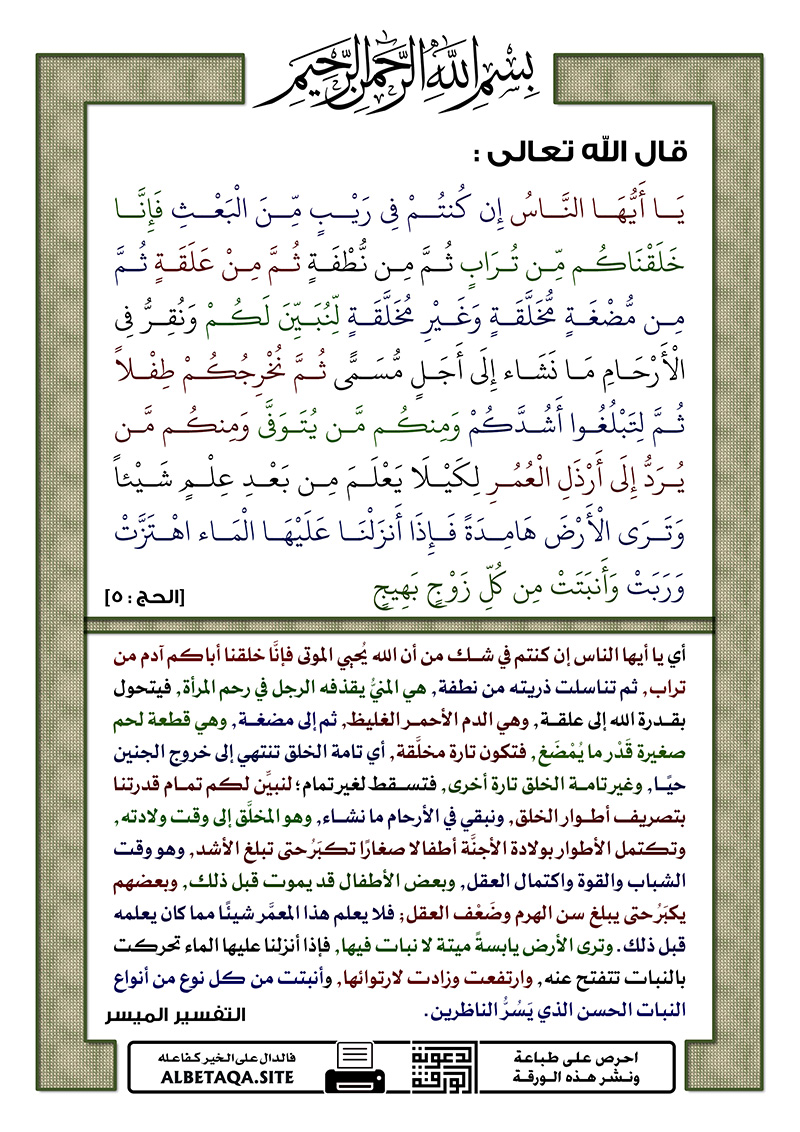 بِسْمِ اللَّهِ الرَّحْمَنِ الرَّحِيمِ
قال الله تعالى :
يَا أَيُّهَا النَّاسُ إِن كُنتُمْ فِي رَيْبٍ مِّنَ الْبَعْثِ فَإِنَّا
خَلَقْنَاكُم مِّن تُرَابٍ ثُمَّ مِن نُّطْفَةٍ ثُمَّ مِنْ عَلَقَةٍ ثُمَّ
مِن مُّضْغَةٍ مُّخَلَّقَةٍ وَغَيْرِ مُخَلَّقَةٍ لِّنُبَيِّنَ لَكُمْ وَنُقِرُّ فِي
الْأَرْحَامِ مَا نَشَاء إِلَى أَجَلٍ مُّسَمًّى ثُمَّ نُخْرِجُكُمْ طِفْلاً
ثُمَّ لِتَبْلُغُوا أَشُدَّكُمْ وَمِنكُم مَّن يُتَوَفَّى وَمِنكُم مَّن
يُرَدُّ إِلَى أَرْذَلِ الْعُمُرِ لِكَيْلَا يَعْلَمَ مِن بَعْدِ عِلْمٍ شَيْئاً
وَتَرَى الْأَرْضَ هَامِدَةً فَإِذَا أَنزَلْنَا عَلَيْهَا الْمَاء اهْتَزَّتْ
وَرَبَتْ وَأَنبَتَتْ مِن كُلِّ زَوْجٍ بَهِيجٍ
[الحج : ٥]
أي يا أيها الناس إن كنتم في شك من أن الله يُحيي الموتى فإنَّا خلقنا أباكم آدم من
تراب, ثم تناسلت ذريته من نطفة, هي المنيُّ يقذفه الرجل في رحم المرأة, فيتحول
بقدرة الله إلى علقة, وهي الدم الأحمر الغليظ, ثم إلى مضغة, وهي قطعة لحم
صغيرة قَدْر ما يُمْضَغ, فتكون تارة مخلَّقة, أي تامة الخلق تنتهي إلى خروج الجنين
حيًا, وغير تامة الخلق تارة أخرى, فتسقط لغير تمام؛ لنبيِّن لكم تمام قدرتنا
بتصريف أطوار الخلق, ونبقي في الأرحام ما نشاء, وهو المخلَّق إلى وقت ولادته,
وتكتمل الأطوار بولادة الأجنَّة أطفالا صغارًا تكبَرُ حتى تبلغ الأشد, وهو وقت
الشباب والقوة واكتمال العقل, وبعض الأطفال قد يموت قبل ذلك, وبعضهم
يكبَرُ حتى يبلغ سن الهرم وضَعْف العقل; فلا يعلم هذا المعمَّر شيئًا مما كان يعلمه
قبل ذلك. وترى الأرض يابسةً ميتة لا نبات فيها, فإذا أنزلنا عليها الماء تحركت
بالنبات تتفتح عنه, وارتفعت وزادت لارتوائها, وأنبتت من كل نوع من أنواع
النبات الحسن الذي يَسُرُّ الناظرين.
التفسير الميسر
احرص على طباعة
ونشر هذه الورقة
الورقة
الدعوية
فالدال على الخير كفاعله
ALBETAQA.SITE